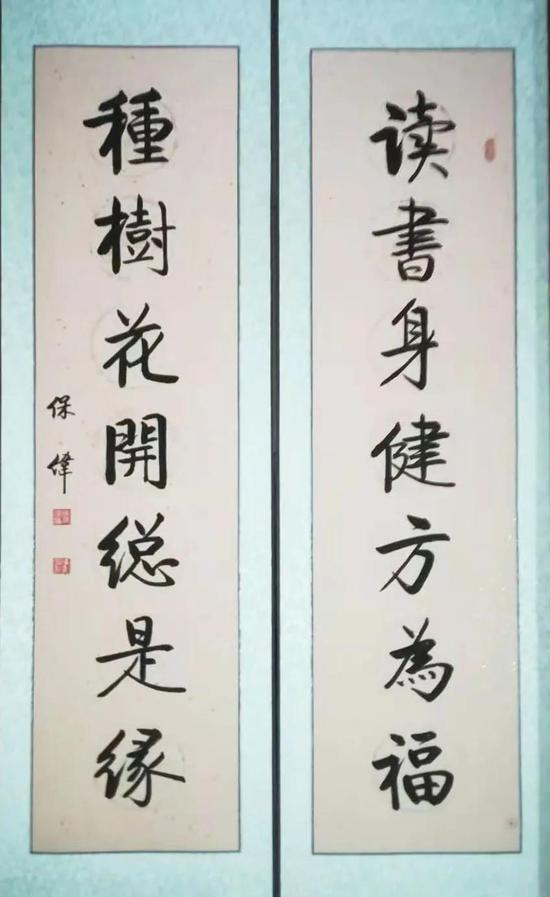 读書身健方為福
種樹花開總是緣
保偉